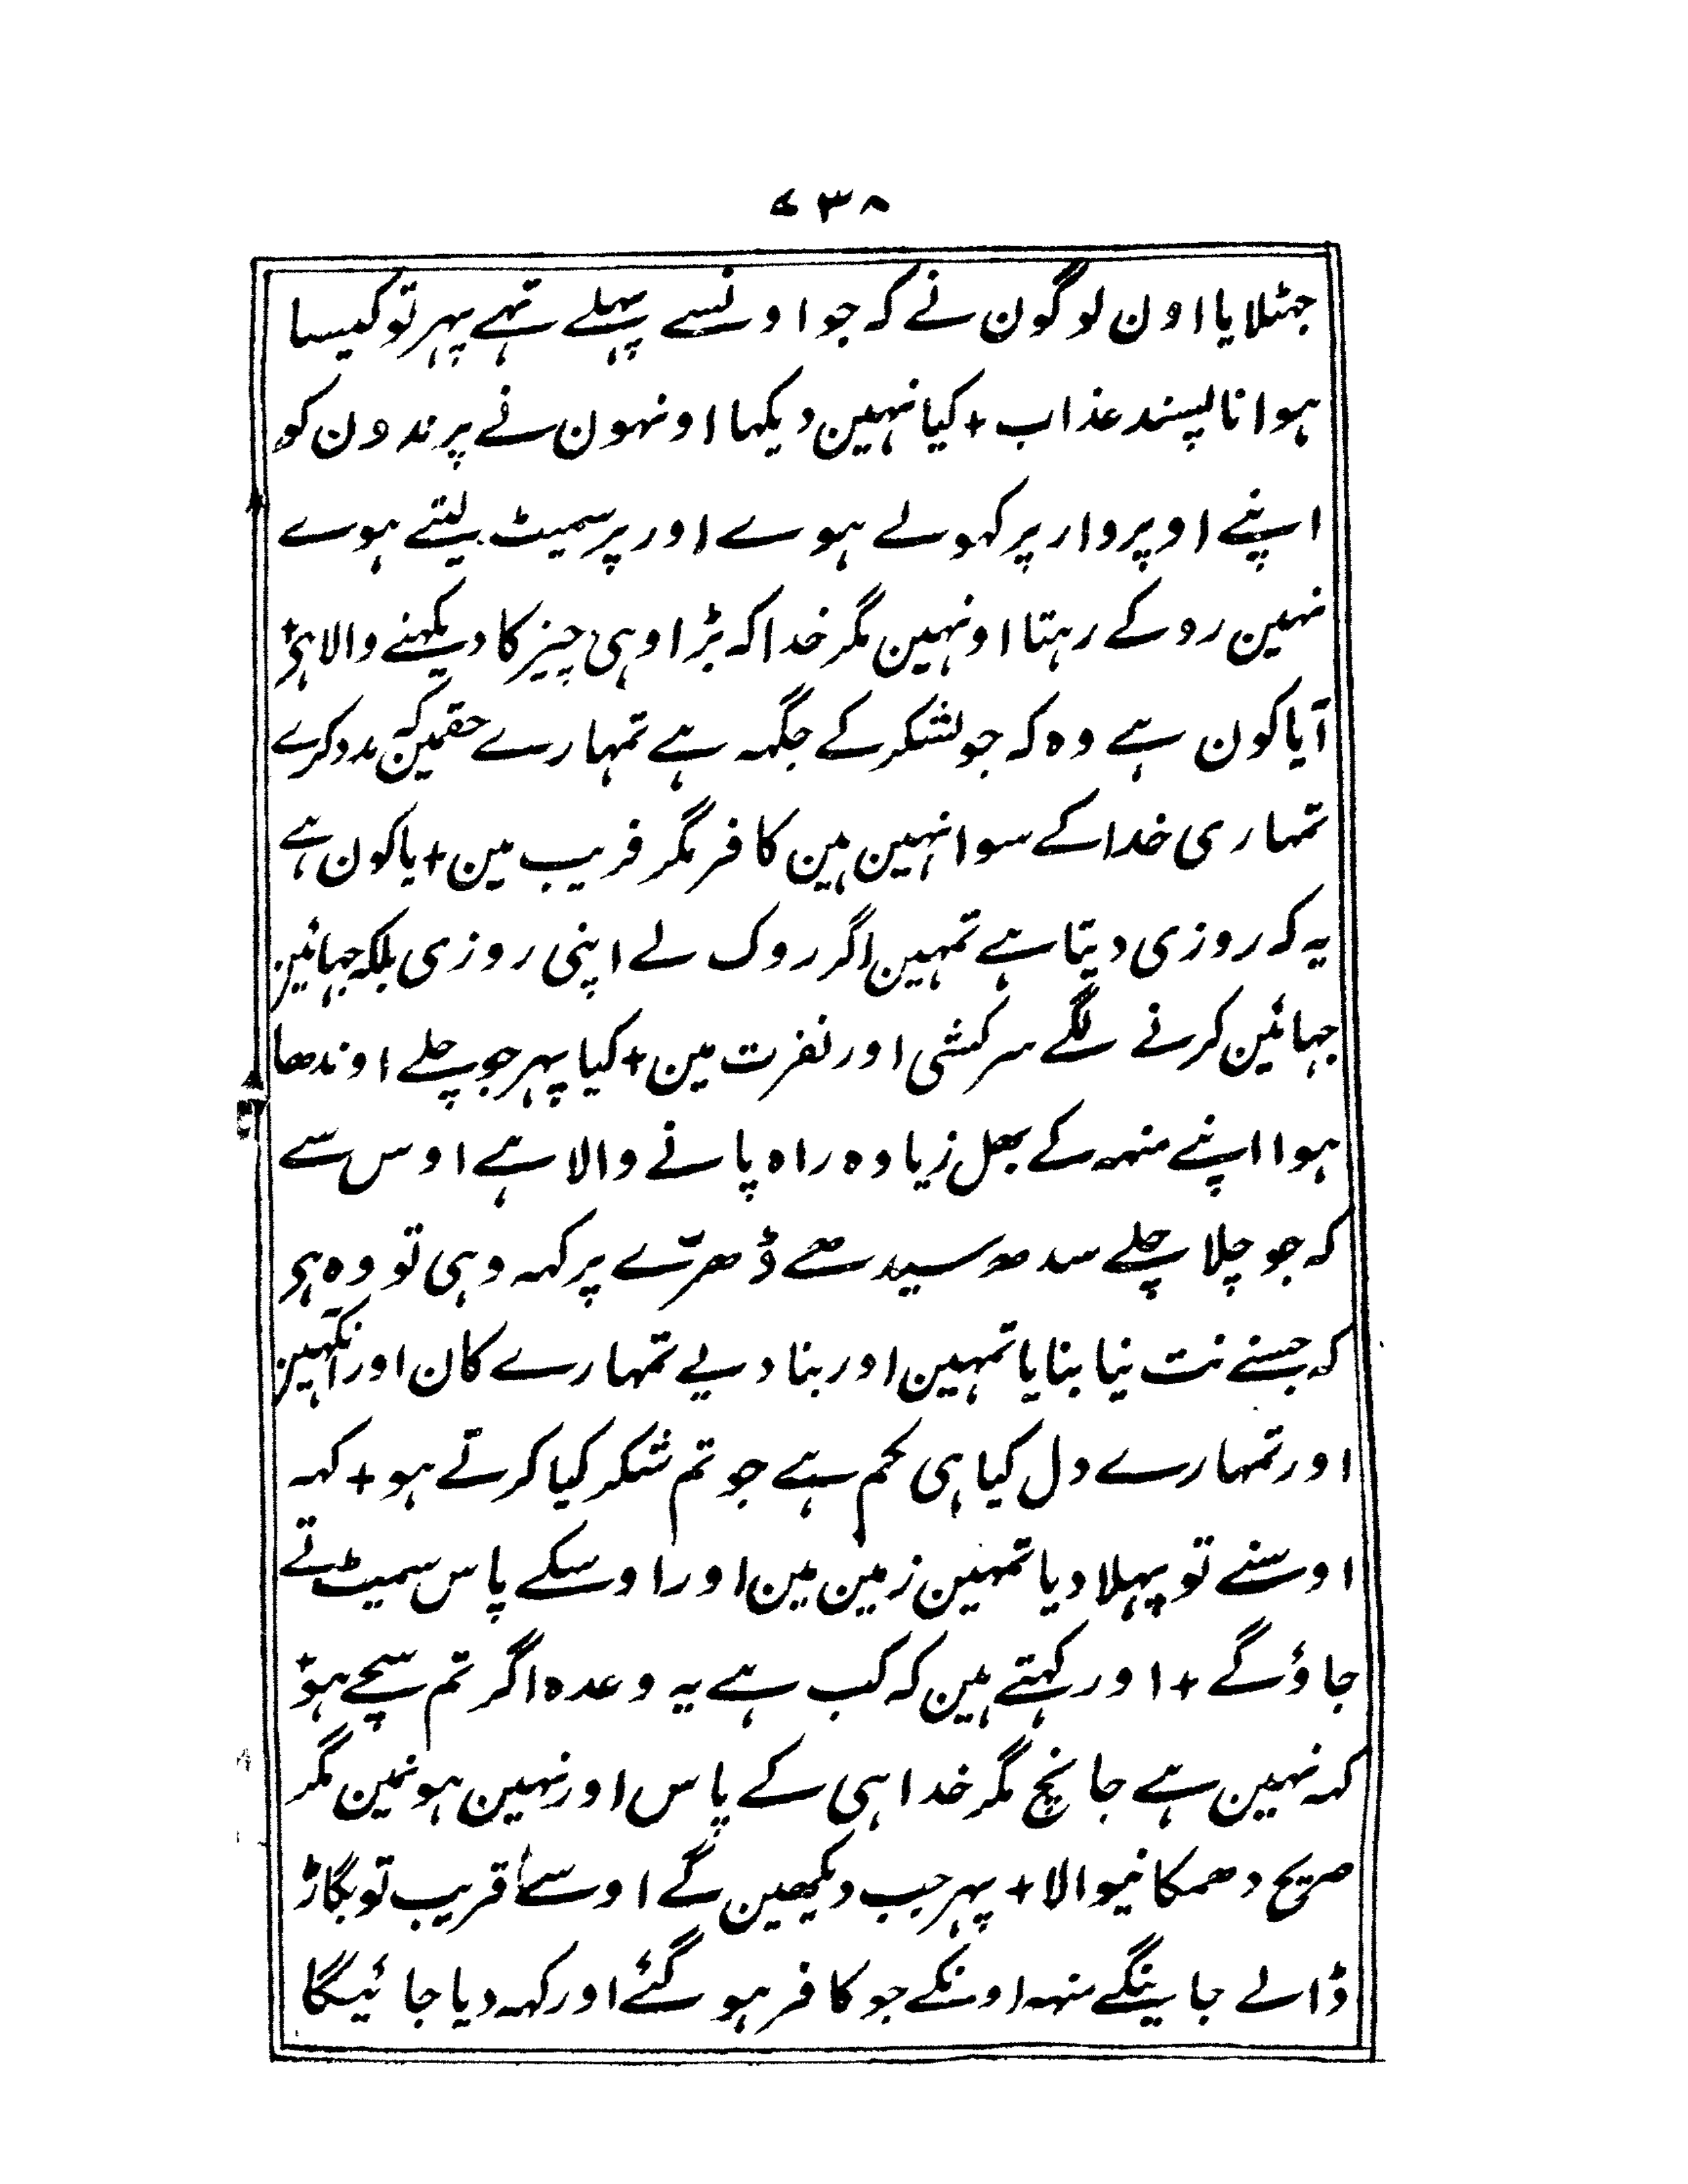 ۷۳۸
جہٹلایا اون لوگون نے کہ جو اونسے پہلے تہے پہر تو کیسا
ہوا ناپسند عذاب + کیا نہین دیکہا اونہون نے پرندون کو
اپنے اوپر وار پر کہولے ہوے اور پر سمیٹ لیتے ہوے
نہین روکے رہتا اونہین مگر خدا کہ بڑا وہی چیز کا دیکہنے والا ہی +
آیا کون ہے وہ کہ جو لشکر کے جگہہ ہے تمہارے حقمین کہ مدد کرے
تمہاری خدا کے سوا نہین ہین کافر مگر فریب مین + یا کون ہے
یہ کہ روزی دیتا ہے تمہین اگر روک لے اپنی روزی بلکہ جہائین
جہائین کرنے لگے سرکشی اور نفرت مین + کیا پہر جو چلے اوندھا
ہوا اپنے منہہ کے بھل زیادہ راہ پانے والا ہے اوس سے
کہ جو چلا چلے سدھ سیدھے ڈھرّے پر کہہ وہی تو وہ ہی
کہ جسنے نت نیا بنایا تمہین اور بنا دیے تمہارے کان اور آنکہین
اور تمہارے دل کیا ہی کم ہے جو تم شکر کیا کرتے ہو + کہہ
اوسنے تو پہلا دیا تمہین زمین مین اور اوسکے پاس سمیٹے
جاؤگے + اور کہتے ہین کہ کب ہے یہ وعدہ اگر تم سچے ہو +
کہہ نہین ہے جانچ مگر خدا ہی کے پاس اور نہین ہونمین مگر
صریح دھمکانیوالا + پہر جب دیکھین گے اوسے قریب تو بگاڑ
ڈالے جاینگے منہہ اونکے جو کافر ہو گئے اور کہہ دیا جائیگا